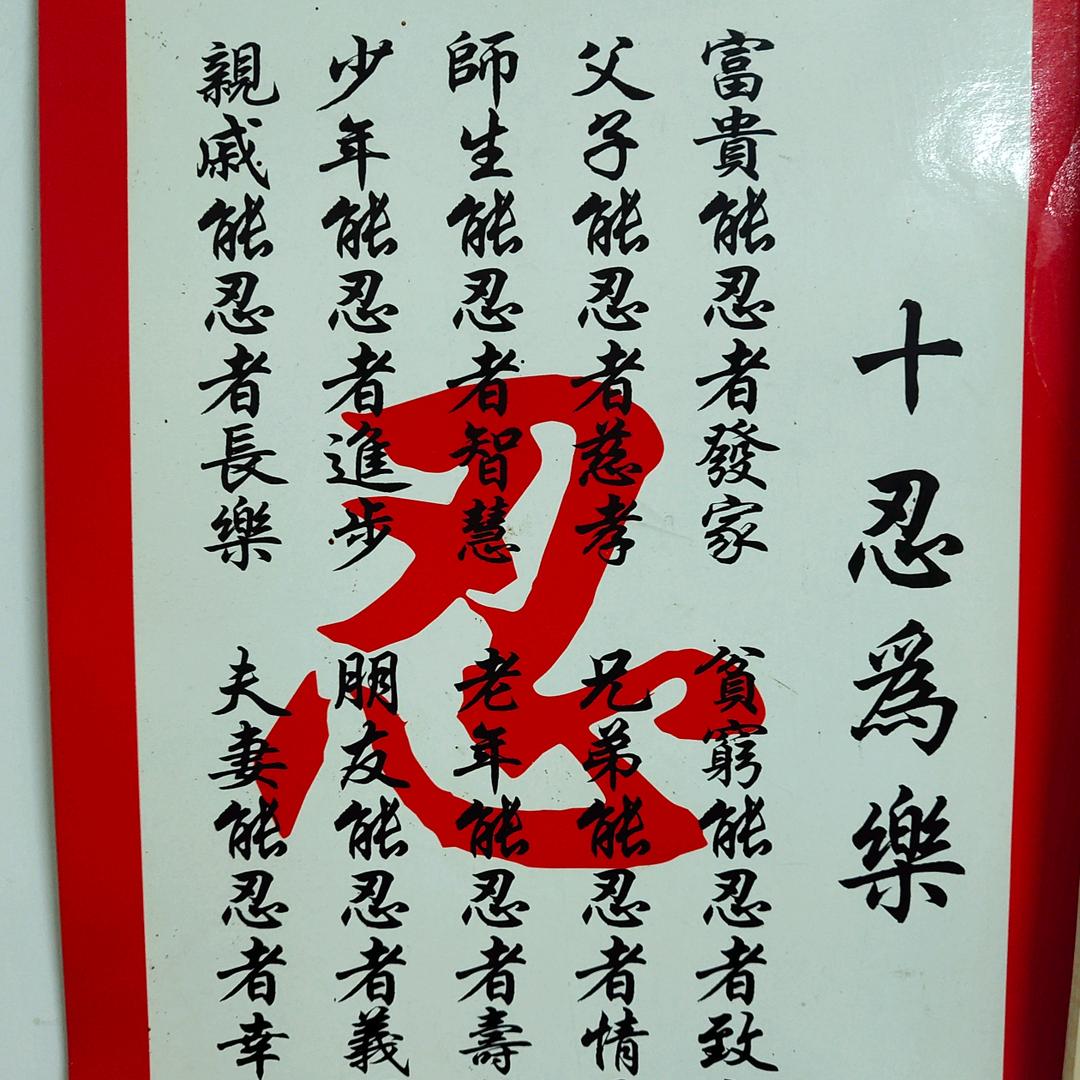 十忍為樂
富貴能忍者發家
貧窮能忍者致
父子能忍者慈孝
兄弟能忍者情
師生能忍者智慧
老年能忍者壽
少年能忍者進步
朋友能忍者義
親戚能忍者長樂
夫妻能忍者幸
忍